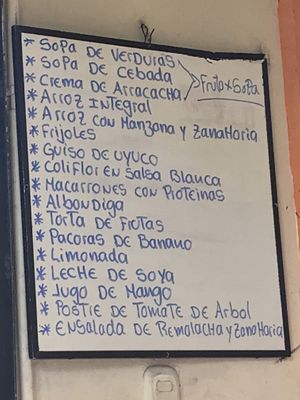 * Sopa de Verduras
* Sopa de Cebada
* Crema de Arracacha
Fruta x Sopa
* Arroz Integral
* Arroz con Manzana y Zanahoria
* Frijoles
* Guiso de Uyuco
* Coliflor en Salsa Blanca
* Macarrones con Proteinas
* Albondiga
* Torta de Frutas
* Pacoras de Banano
* Limonada
* Leche de Soya
* Jugo de Mango
* Postre de Tomate de Arbol
* Ensalada de Remolacha y Zanahoria